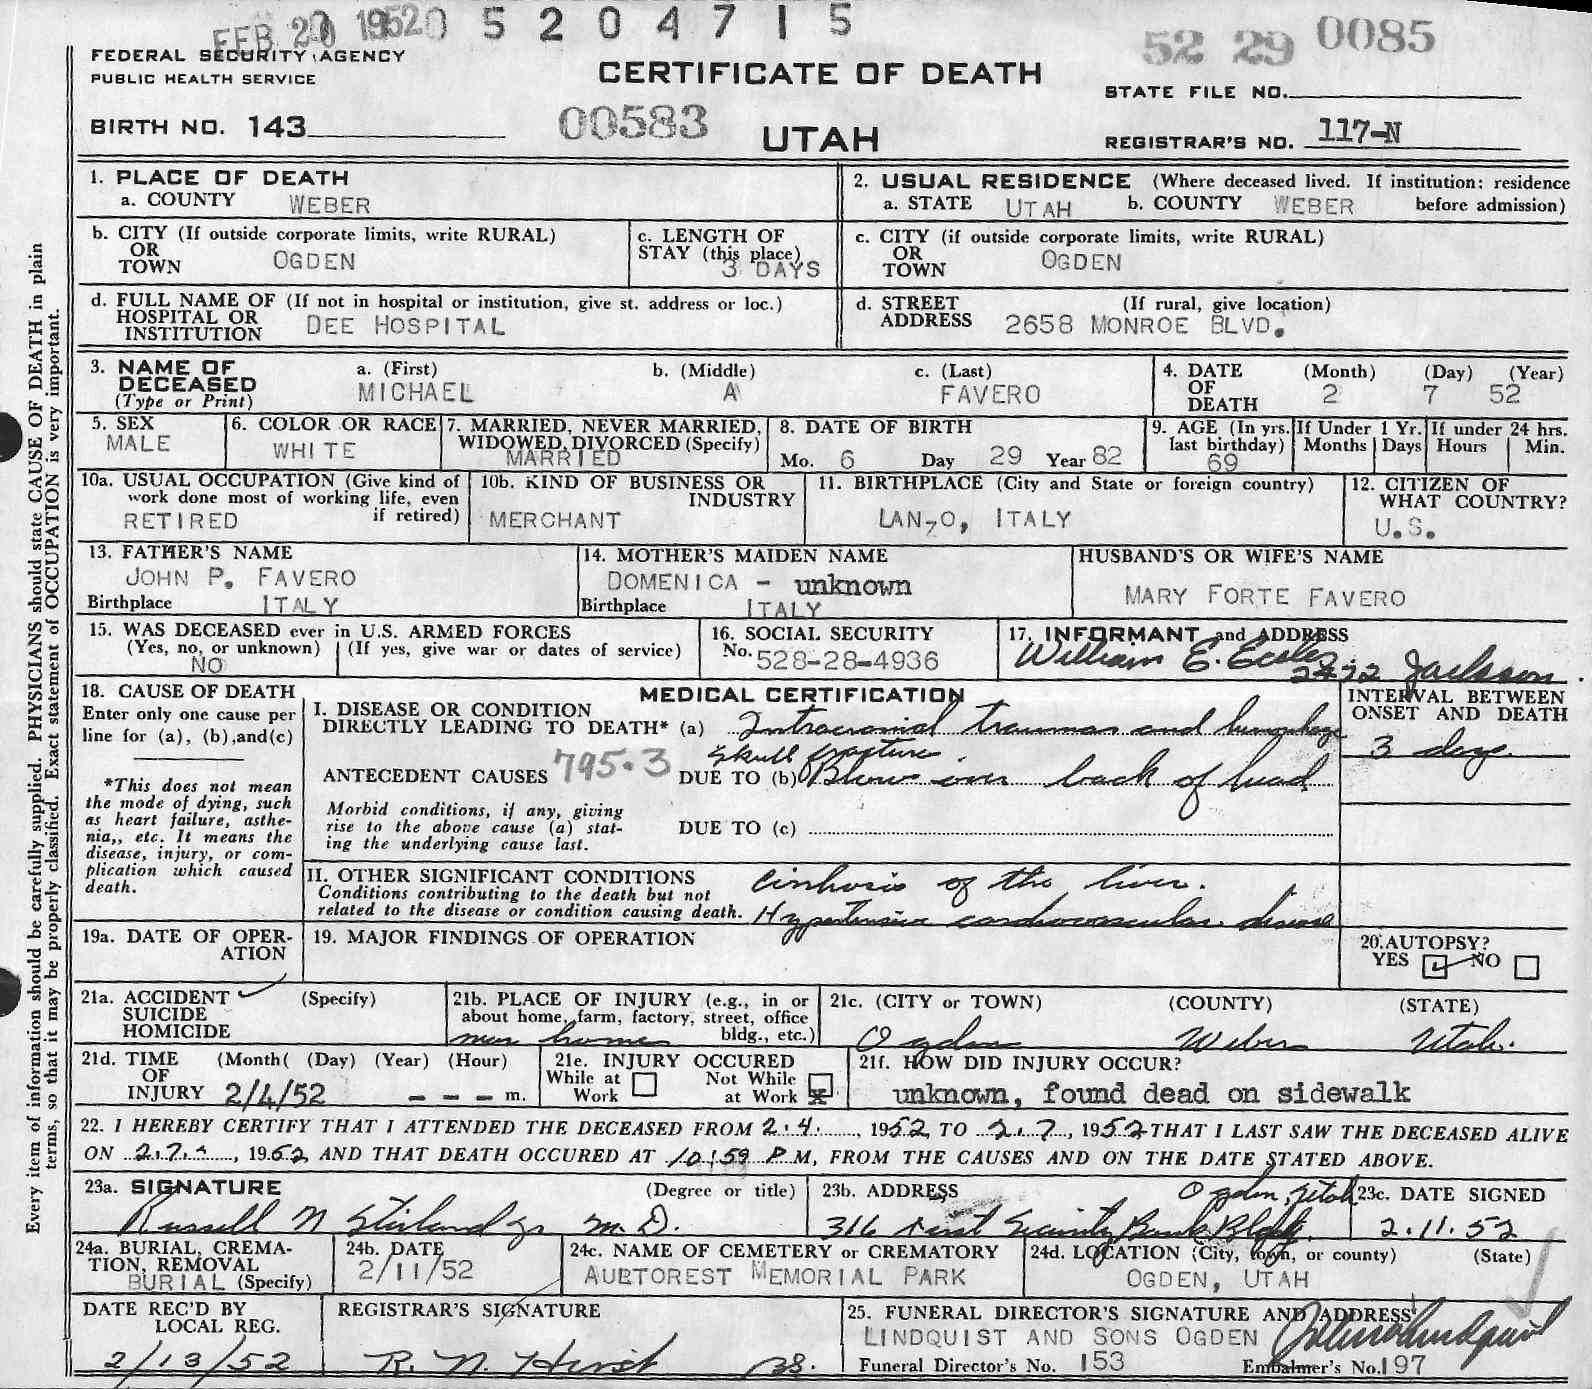 FEB 20 1952 0 5 2 0 4 7 1 5
52 29 0085
FEDERAL SECURITY AGENCY
PUBLIC HEALTH SERVICE
CERTIFICATE OF DEATH
STATE FILE NO.
BIRTH NO. 143
00583
UTAH
REGISTRAR'S NO. 117-N
1. PLACE OF DEATH
a. COUNTY WEBER
2. USUAL RESIDENCE (Where deceased lived. If institution: residence before admission)
a. STATE UTAH b. COUNTY WEBER
b. CITY (If outside corporate limits, write RURAL)
OR
TOWN OGDEN
c. LENGTH OF
STAY (this place)
3 DAYS
c. CITY (if outside corporate limits, write RURAL)
OR
TOWN OGDEN
d. FULL NAME OF (If not in hospital or institution, give st. address or loc.)
HOSPITAL OR
INSTITUTION DEE HOSPITAL
d. STREET (If rural, give location)
ADDRESS 2658 MONROE BLVD.
3. NAME OF
DECEASED
(Type or Print)
a. (First) b. (Middle) c. (Last)
MICHAEL A FAVERO
4. DATE
OF
DEATH
(Month) (Day) (Year)
2 7 52
5. SEX
MALE
6. COLOR OR RACE
WHITE
7. MARRIED, NEVER MARRIED,
WIDOWED, DIVORCED (Specify)
MARRIED
8. DATE OF BIRTH
Mo. 6 Day 29 Year 82
9. AGE (In yrs.
last birthday)
69
If Under 1 Yr.
Months Days
If under 24 hrs.
Hours Min.
10a. USUAL OCCUPATION (Give kind of
work done most of working life, even
if retired)
RETIRED
10b. KIND OF BUSINESS OR
INDUSTRY
MERCHANT
11. BIRTHPLACE (City and State or foreign country)
LANZO, ITALY
12. CITIZEN OF
WHAT COUNTRY?
U.S.
13. FATHER'S NAME
JOHN P. FAVERO
Birthplace ITALY
14. MOTHER'S MAIDEN NAME
DOMENICA - unknown
Birthplace ITALY
HUSBAND'S OR WIFE'S NAME
MARY FORTE FAVERO
15. WAS DECEASED ever in U.S. ARMED FORCES
(Yes, no, or unknown) (If yes, give war or dates of service)
NO
16. SOCIAL SECURITY
No. 528-28-4936
17. INFORMANT and ADDRESS
William E. Eccles
2472 Jackson.
18. CAUSE OF DEATH
Enter only one cause per
line for (a), (b),and(c)
*This does not mean
the mode of dying, such
as heart failure, asthe-
nia,, etc. It means the
disease, injury, or com-
plication which caused
death.
MEDICAL CERTIFICATION
I. DISEASE OR CONDITION
DIRECTLY LEADING TO DEATH* (a) Intracranial traumas and hemorrhage
Skull fracture
ANTECEDENT CAUSES 795.3 DUE TO (b) Blow over back of head
Morbid conditions, if any, giving
rise to the above cause (a) stat-
ing the underlying cause last.
DUE TO (c)
INTERVAL BETWEEN
ONSET AND DEATH
3 days.
II. OTHER SIGNIFICANT CONDITIONS
Conditions contributing to the death but not
related to the disease or condition causing death.
Cirrhosis of the liver.
Hypertensive cardiovascular disease
19a. DATE OF OPER-
ATION
19. MAJOR FINDINGS OF OPERATION
20. AUTOPSY?
YES NO
21a. ACCIDENT (Specify)
SUICIDE
HOMICIDE
21b. PLACE OF INJURY (e.g., in or
about home, farm, factory, street, office
bldg., etc.)
near home
21c. (CITY or TOWN) (COUNTY) (STATE)
Ogden Weber Utah.
21d. TIME (Month( (Day) (Year) (Hour)
OF
INJURY 2/4/52 - - - m.
21e. INJURY OCCURED
While at
Work
Not While
at Work x
21f. HOW DID INJURY OCCUR?
unknown, found dead on sidewalk
22. I HEREBY CERTIFY THAT I ATTENDED THE DECEASED FROM 2.4., 1952 TO 2.7, 1952 THAT I LAST SAW THE DECEASED ALIVE
ON 2.7., 1952 AND THAT DEATH OCCURED AT 10:59 P M, FROM THE CAUSES AND ON THE DATE STATED ABOVE.
23a. SIGNATURE (Degree or title)
Russell N Stirland Jr M.D.
23b. ADDRESS Ogden, Utah
316 First Security Bank Bldg.
23c. DATE SIGNED
2.11.52
24a. BURIAL, CREMA-
TION, REMOVAL
BURIAL (Specify)
24b. DATE
2/11/52
24c. NAME OF CEMETERY or CREMATORY
AULTOREST MEMORIAL PARK
24d. LOCATION (City, town, or county) (State)
OGDEN, UTAH
DATE REC'D BY
LOCAL REG.
2/13/52
REGISTRAR'S SIGNATURE
R. N. Hirst
25. FUNERAL DIRECTOR'S SIGNATURE AND ADDRESS
LINDQUIST AND SONS OGDEN
Funeral Director's No. 153
Embalmer's No. 197
Every item of information should be carefully supplied. PHYSICIANS should state CAUSE OF DEATH in plain
terms, so that it may be properly classified. Exact statement of OCCUPATION is very important.